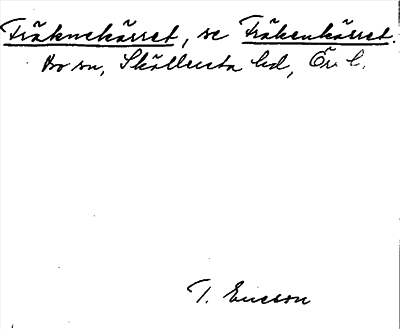 Fräknekärret, se Fräkenkärret.
Bo sn, Skyllersta hd, Ör l.
T. Ericson